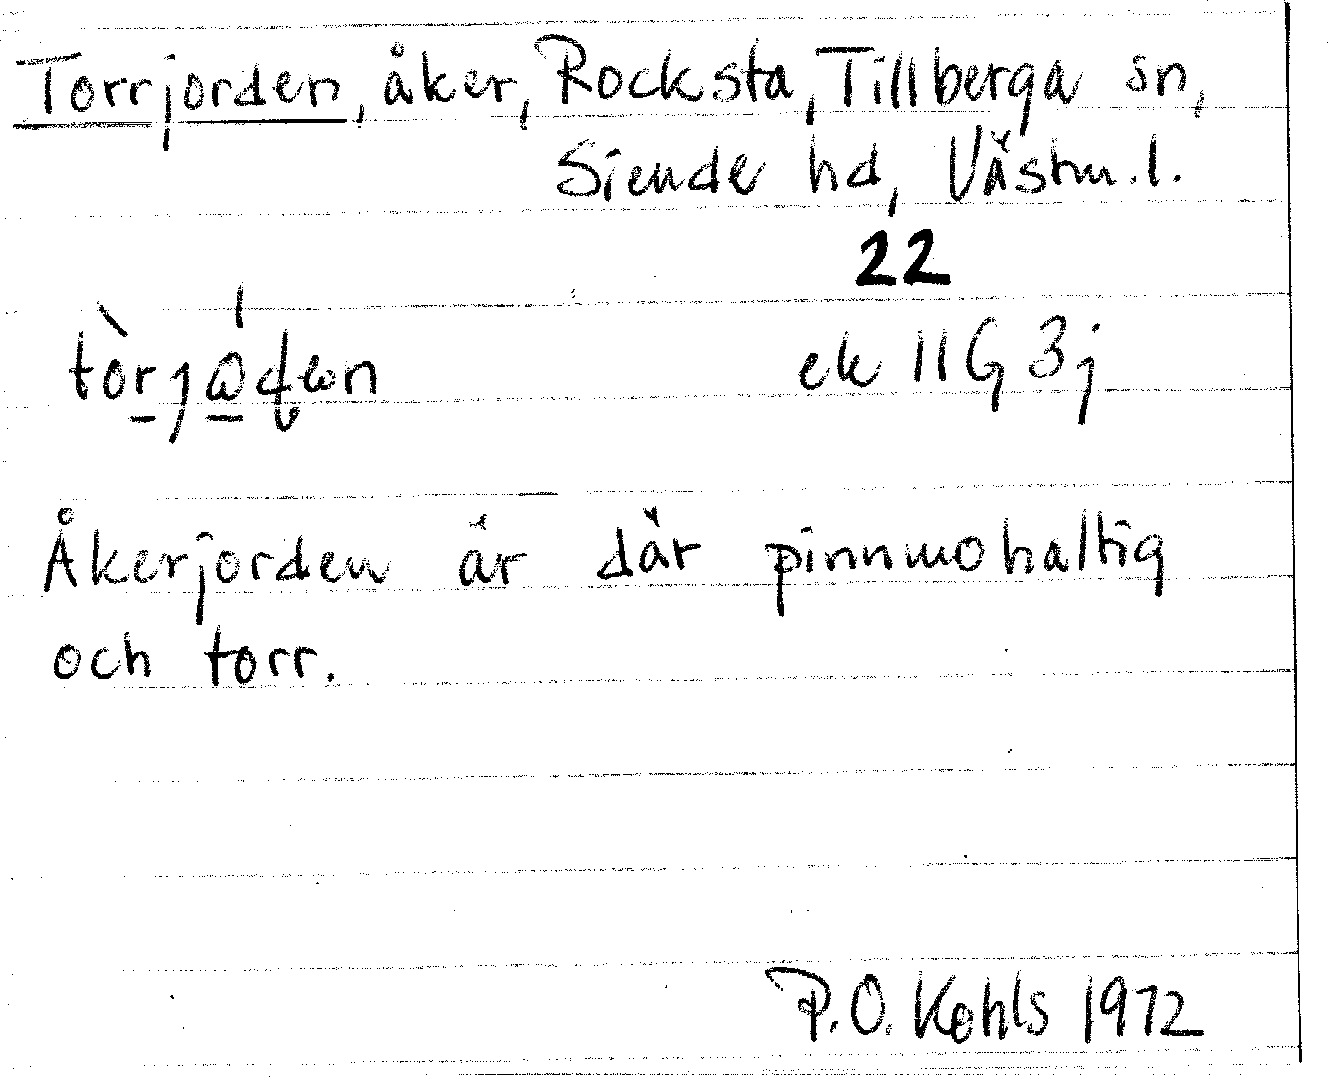 Torrjorden, åker, Rocksta, Tillberga sn,
Siende hd, Västm.l.
22
ek 11G 3j
Åkerjorden är där pinnmohaltig
och torr.
P.O. Kohls 1972